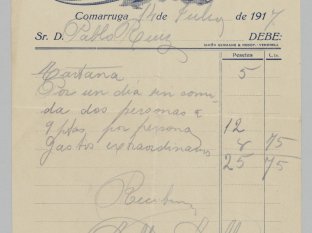 Comarruga 14 de Julio de 1917
Sr. D. Pablo Ruiz DEBE:
Pesetas Cts.
Tartana 5
Por un dia en comi
da dos personas a
9 ptas, por persona 12
Gastos extraordinarios 8 75
25 75
Recibi